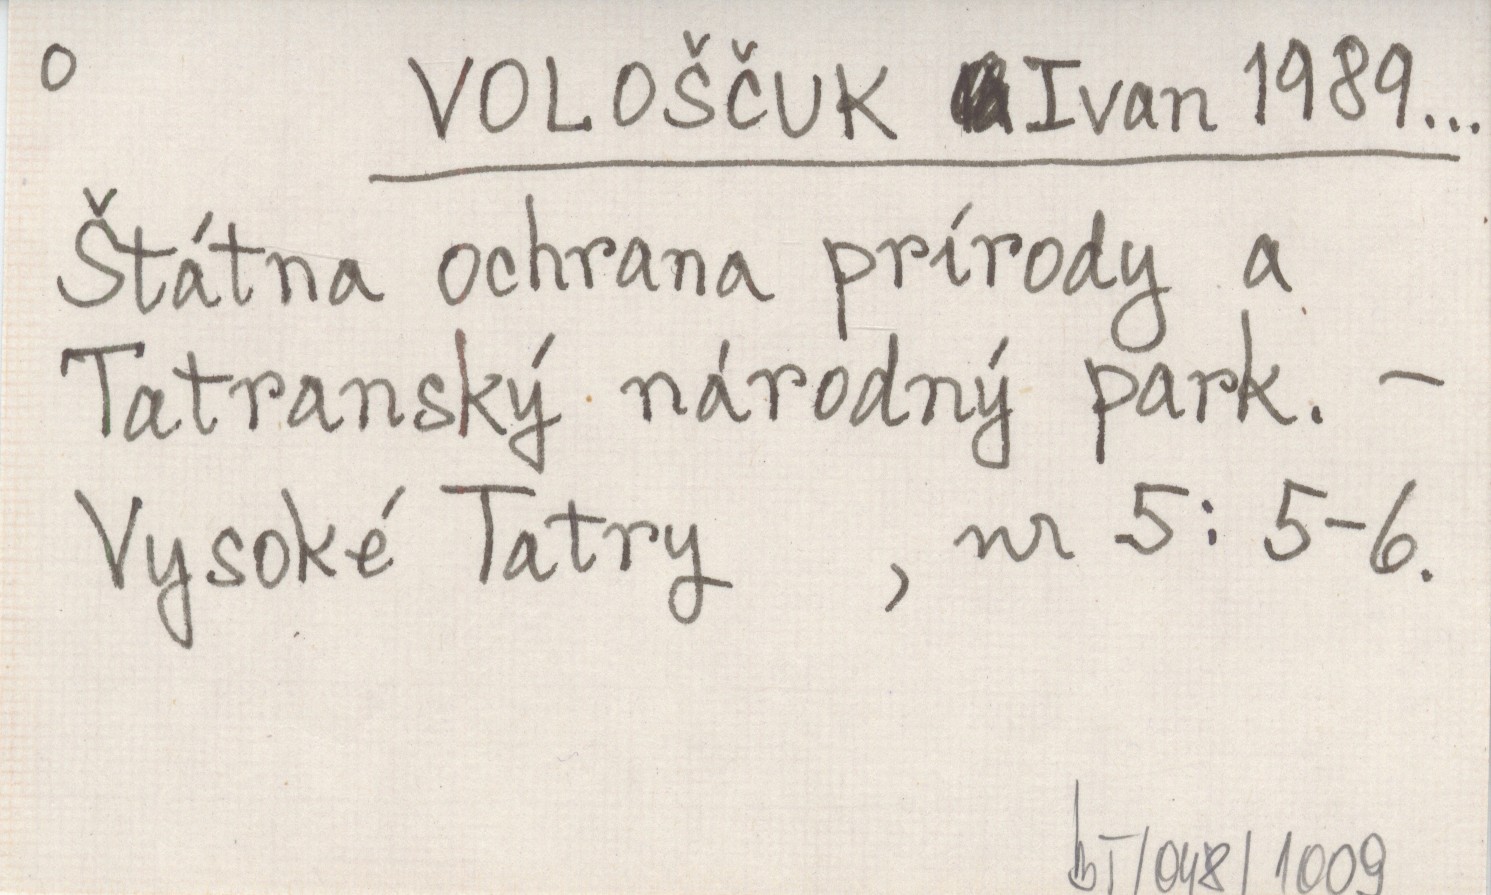 o VOLOŠČUK Ivan 1989...
Štátna ochrana prírody a
Tatranský národný park. –
Vysoké Tatry , nr 5: 5–6.
bT/048/1009